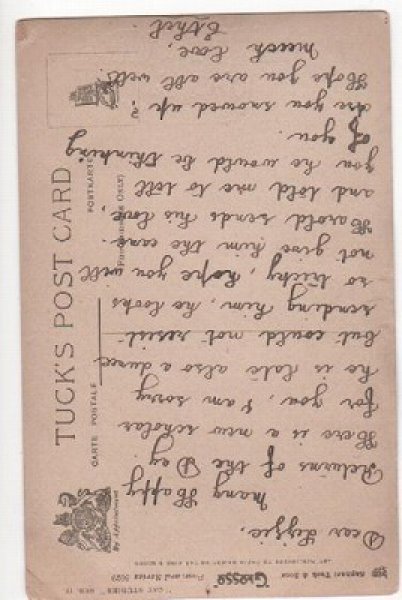 Dear Lizzie,
Many Happy
Returns of the Day.
Here is a new scholar
for you, I am sorry
he is late also a dunce
but could not resist
sending him, he looks
so tricky, hope you will
not give him the cane.
Harold sends his love,
and told me to tell
you he would be thinking
of you.
Are you snowed up?
Hope you are all well.
much love,
Ethel.
TUCK'S POST CARD
CARTE POSTALE
POSTKARTE
(FOR ADDRESS ONLY)
By Appointment
Raphael Tuck & Sons
"Glosso" Postcard Series
"CAT STUDIES" SER. II